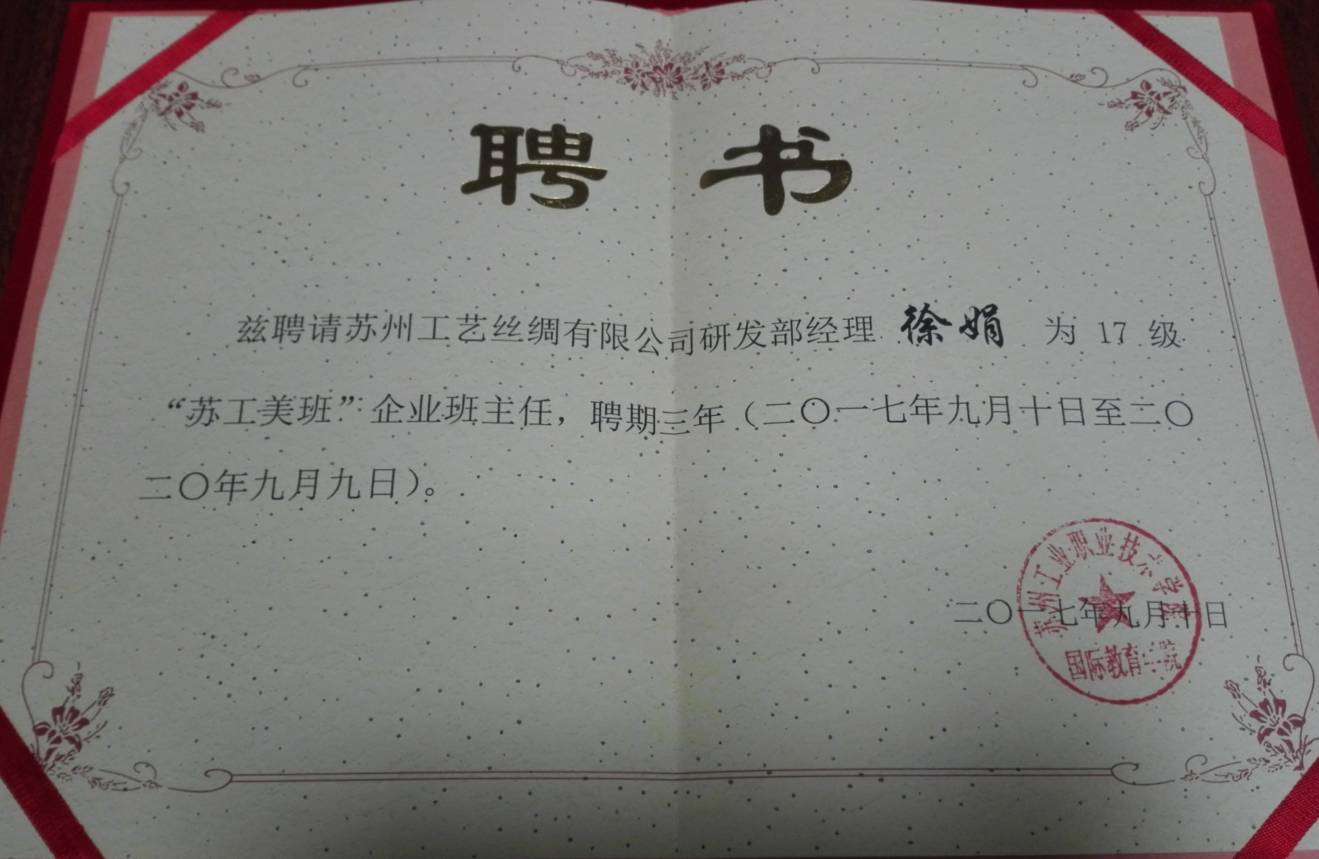 聘书
兹聘请苏州工艺丝绸有限公司研发部经理 徐娟 为 17 级
“苏工美班”企业班主任，聘期三年（二〇一七年九月十日至二〇
二〇年九月九日）。
苏州工业职业技术学院
国际教育学院
二〇一七年九月十日